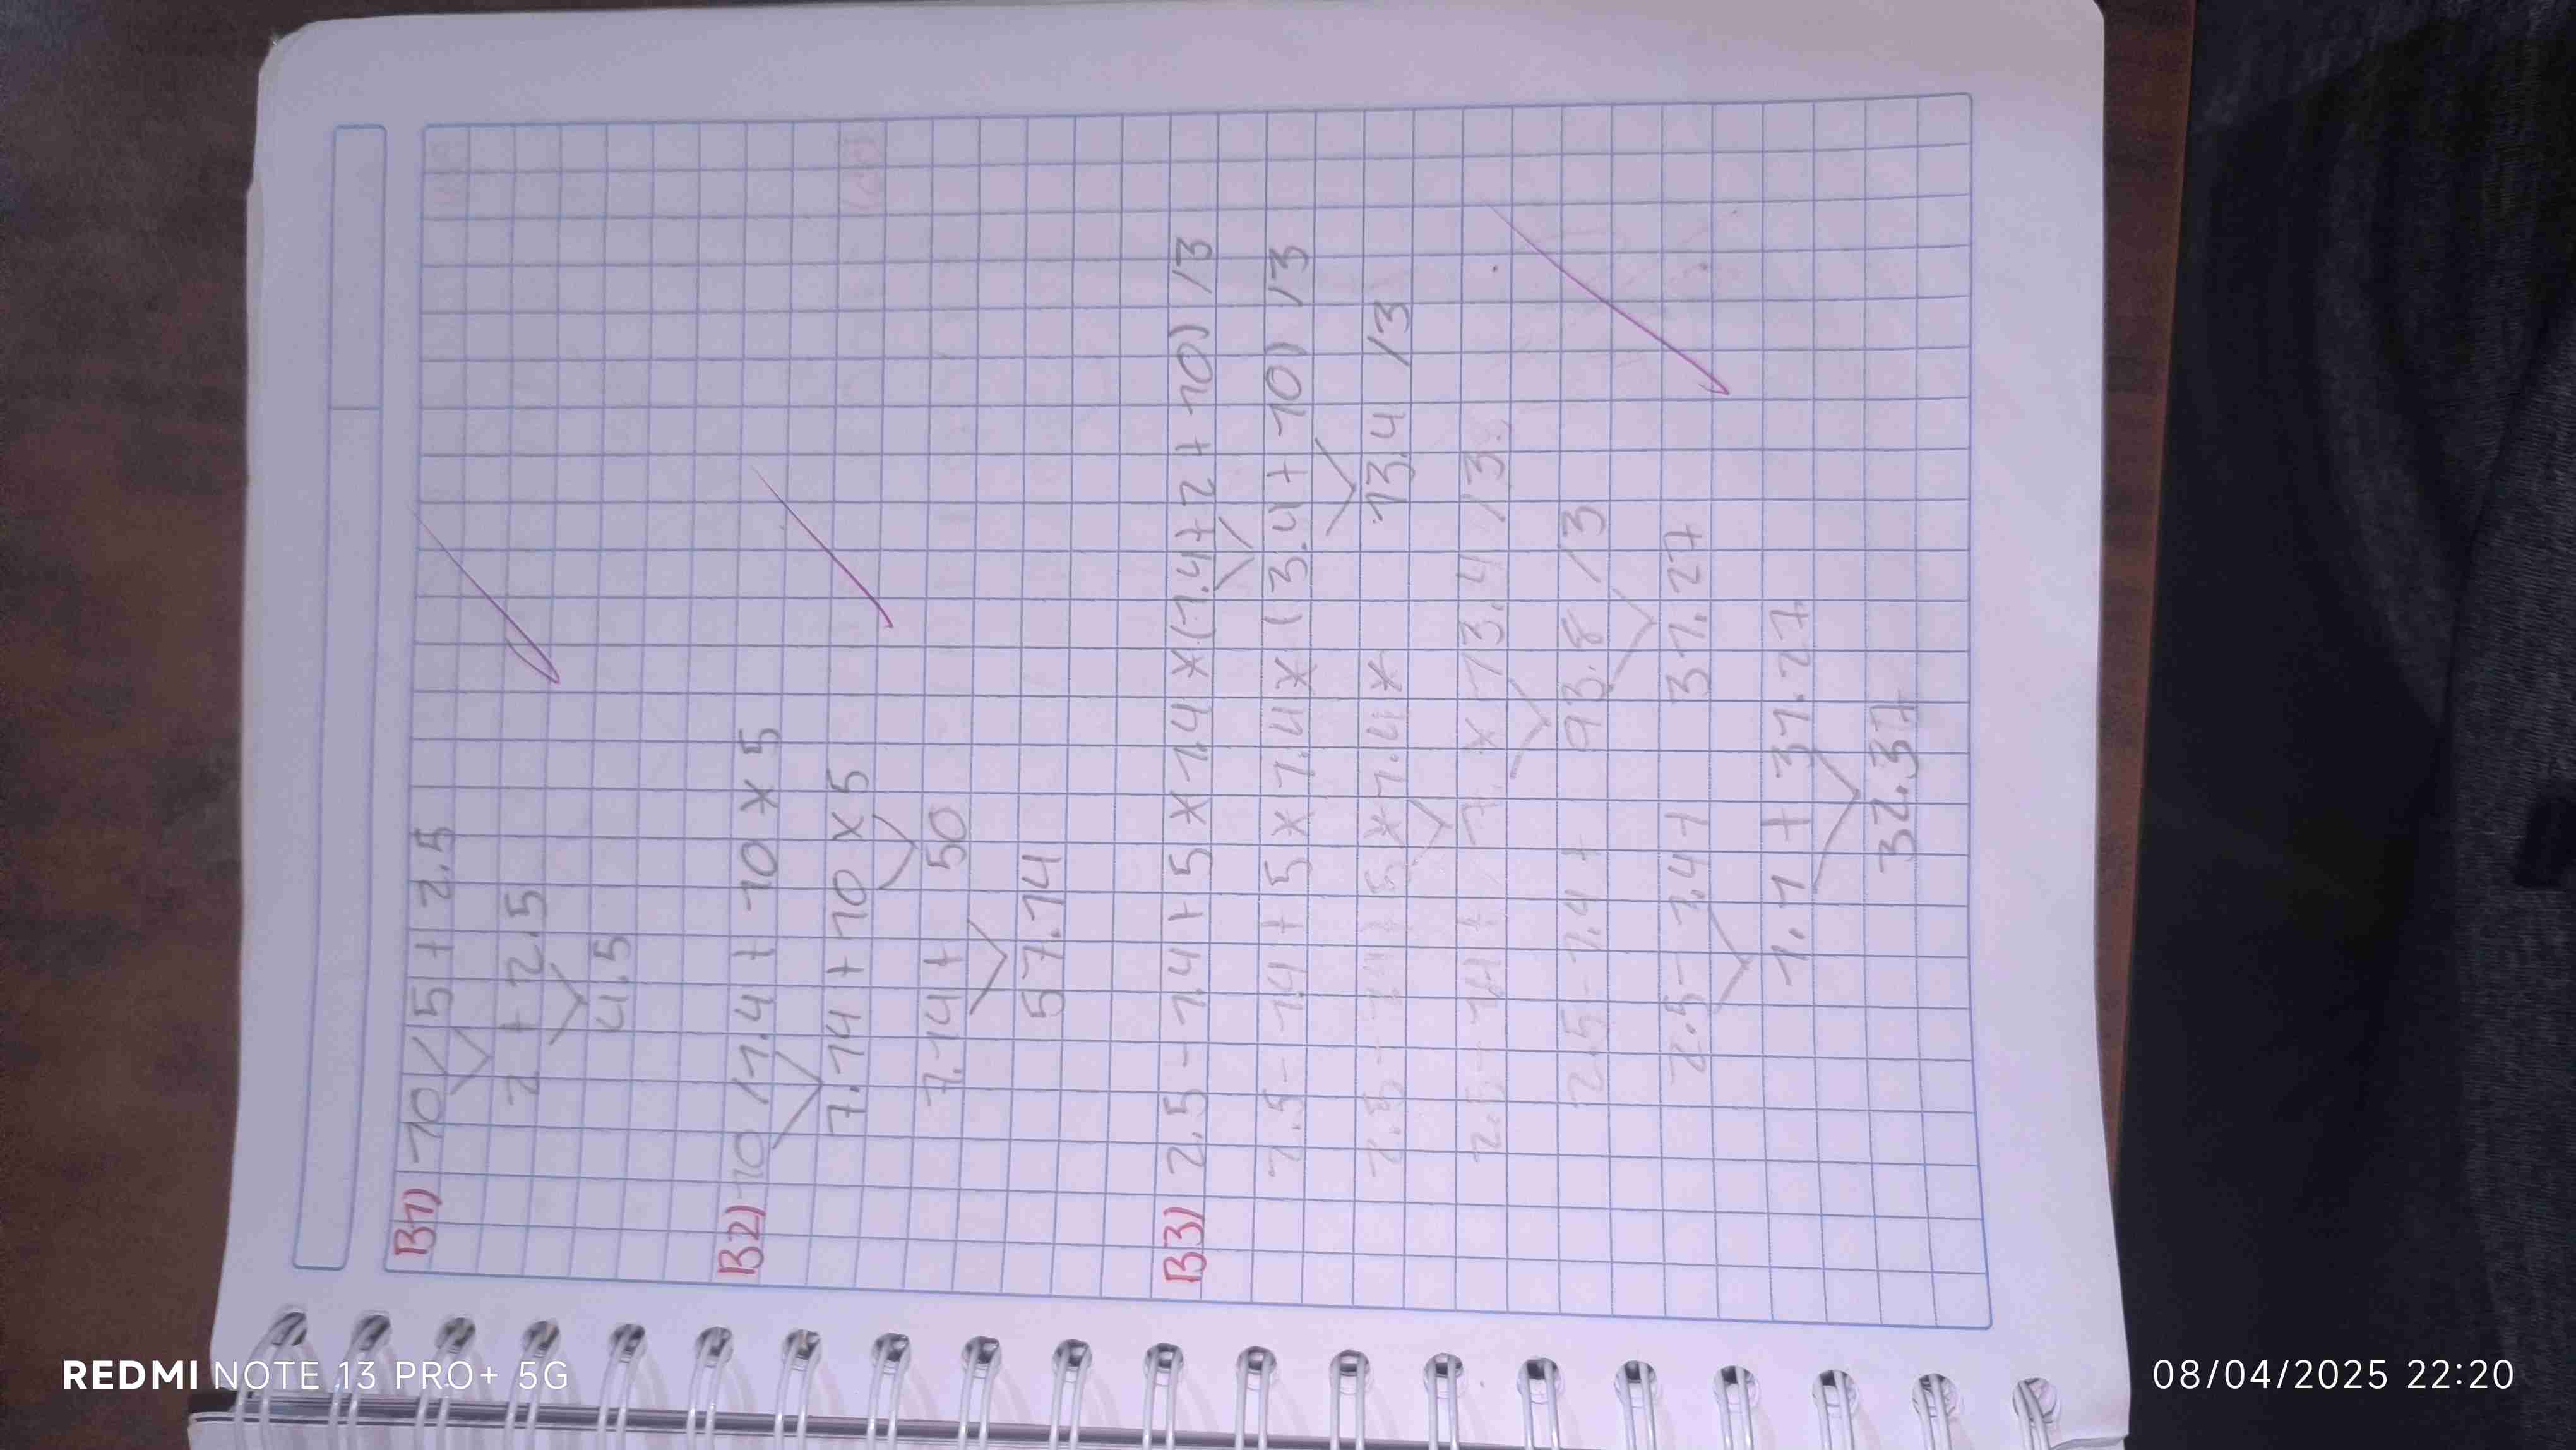 B1) 10/5+2.5
2 + 2.5
4.5
B2) 10/1.4 + 10 * 5
7.14 + 10 * 5
7.14 + 50
57.14
B3) 2.5 - 1.4 + 5 * 1.4 * (1.4 + 2 + 10) /3
2.5 - 1.4 + 5 * 1.4 * (3.4 + 10) /3
2.5 - 1.4 + 5 * 1.4 * 13.4 /3
2.5 - 1.4 + 7. * 13.4 /3.
2.5 - 1.4 + 93.8 /3
2.5 - 1.4 + 31.27
1.1 + 31.27
32.37
REDMI NOTE 13 PRO+ 5G
08/04/2025 22:20